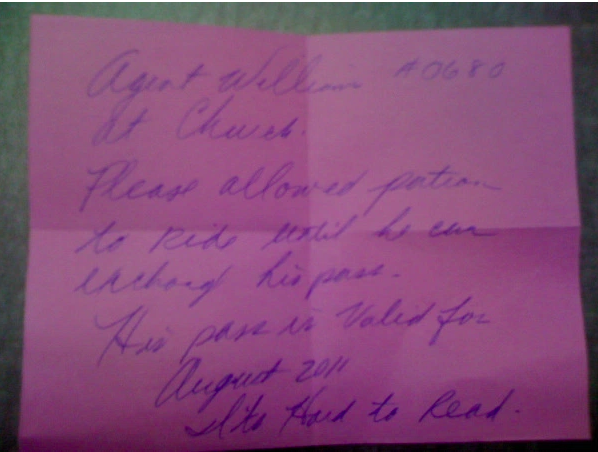 Agent William #0680
at Church.
Please allowed patron
to Ride until he can
exchang his pass.
His pass is Valid for
August 2011
Its Hard to Read.